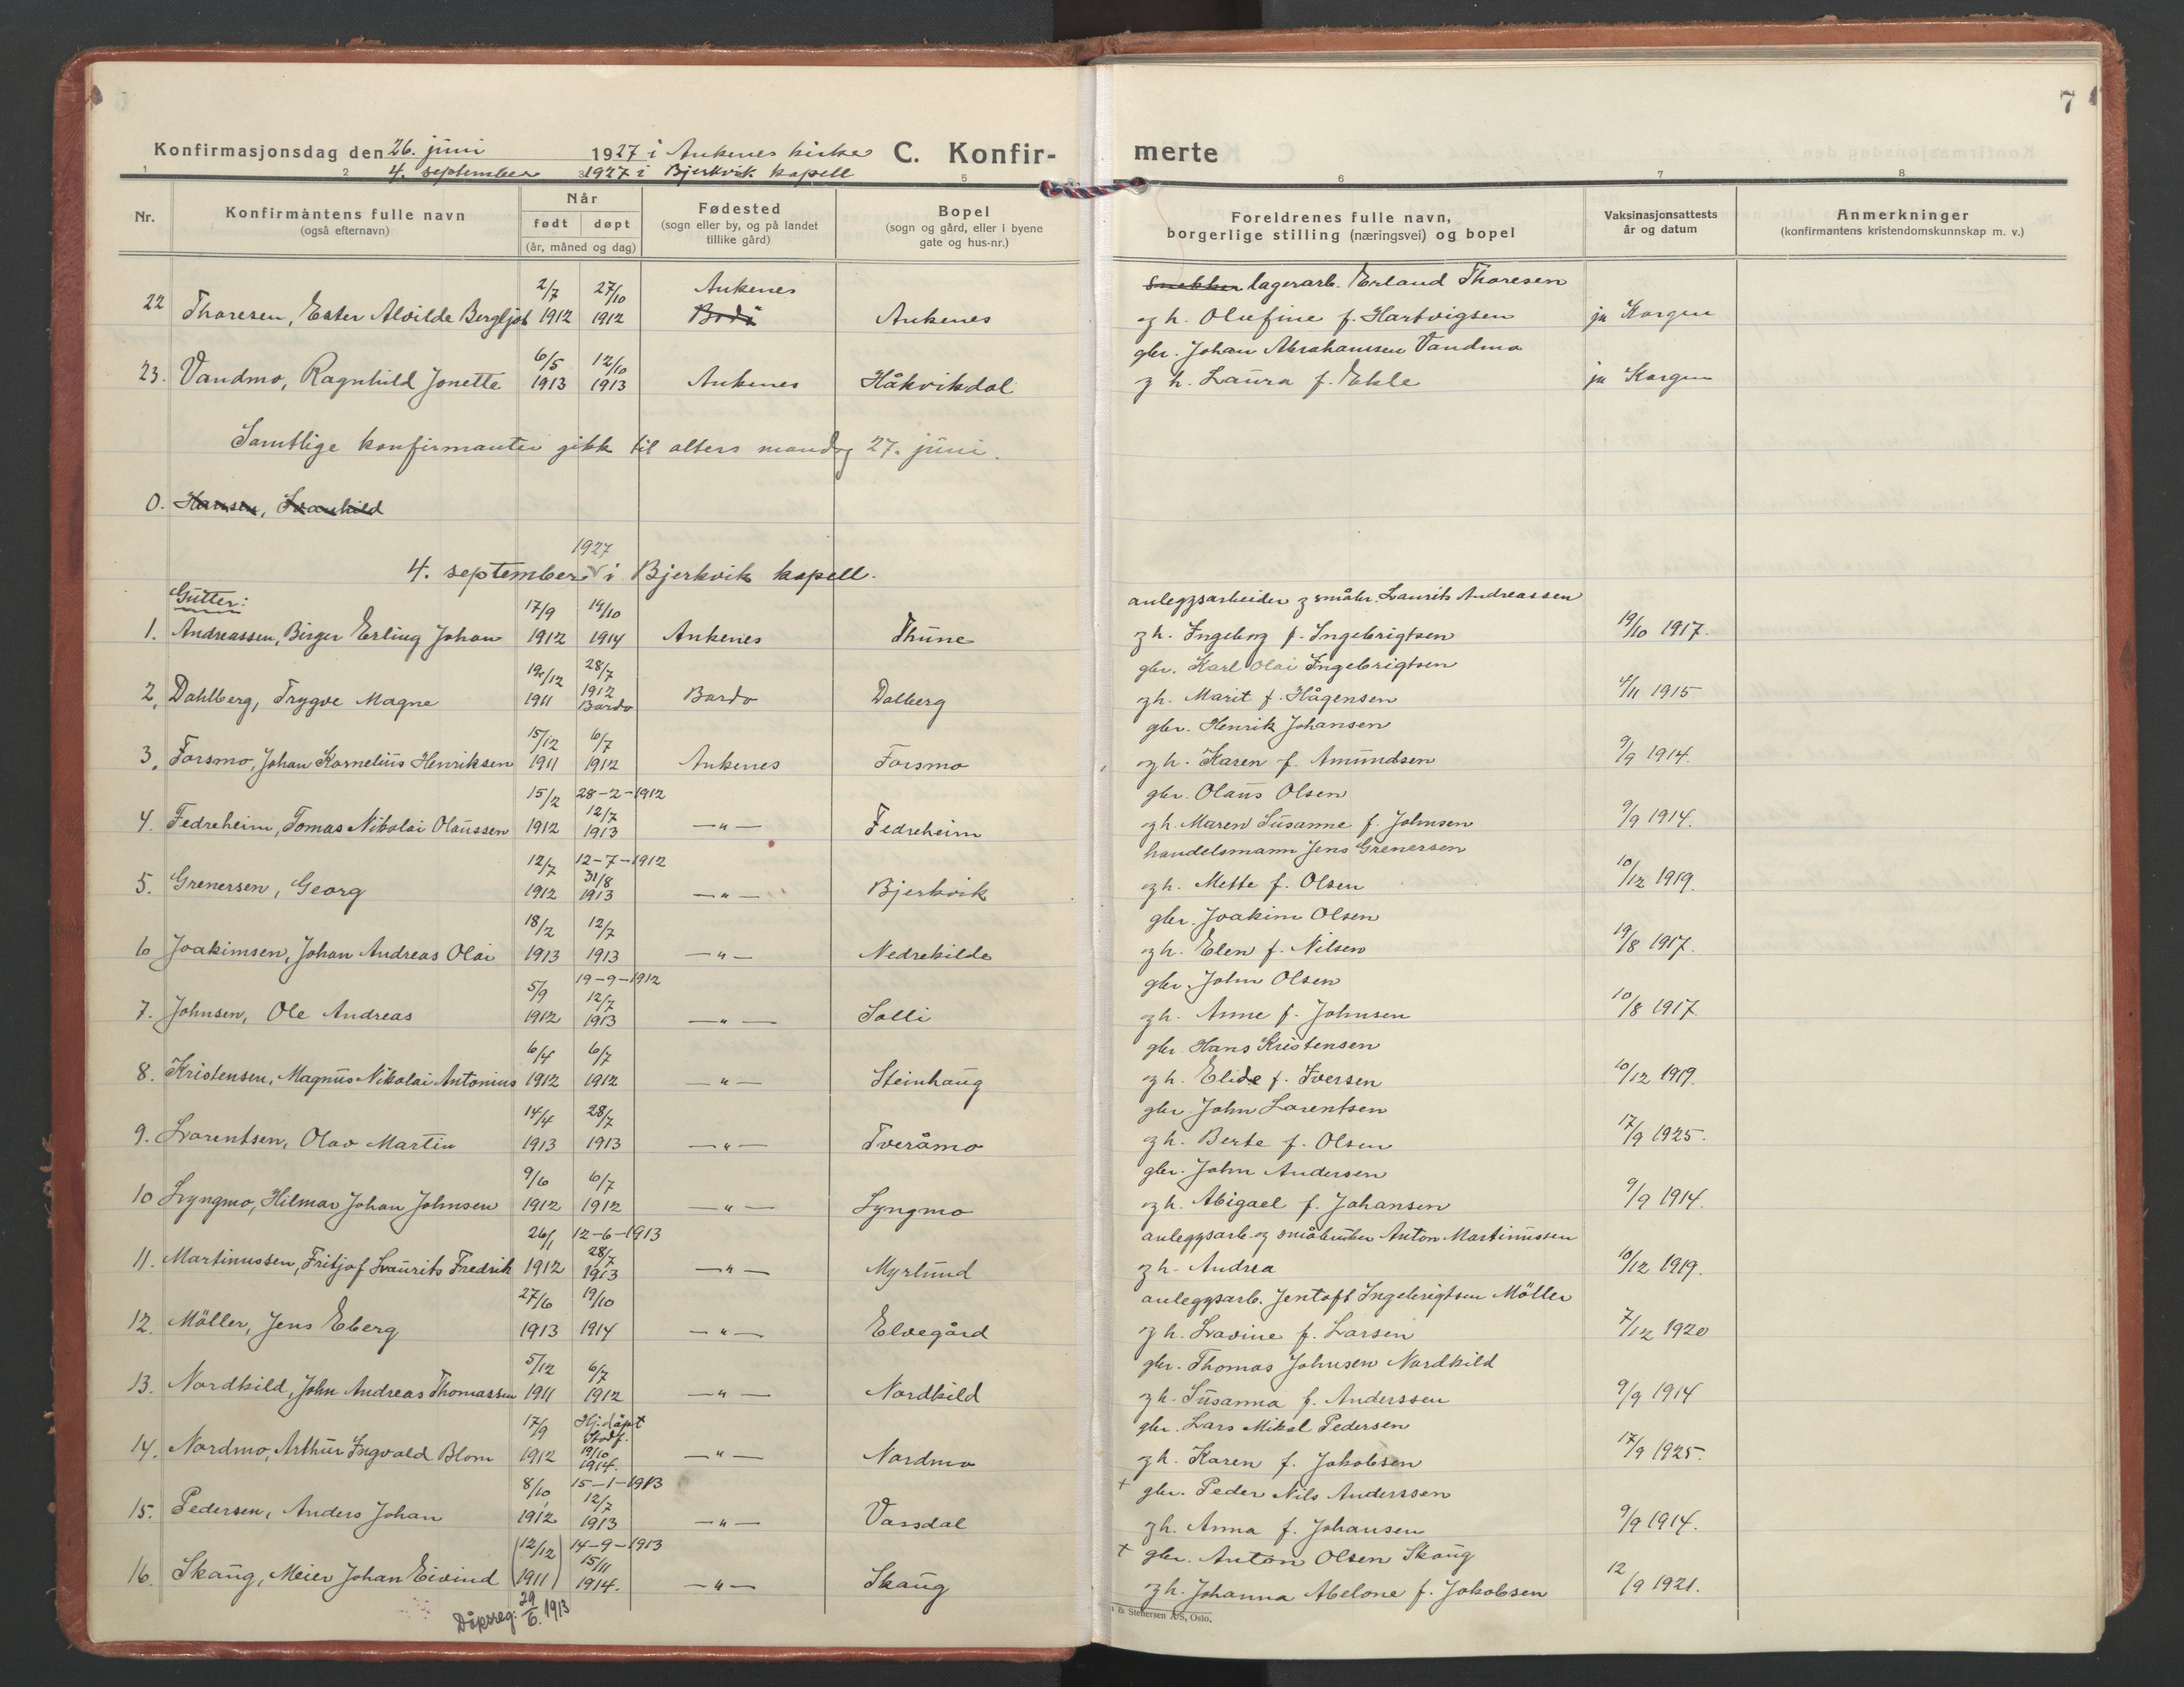 7
Konfirmasjonsdag den 26. juni 1927 i Ankenes kirke C. Konfirmerte
4. september 1927 i Bjerkvik kapell
1 2 3 5 6 7 8
Nr. Konfirmantens fulle navn (også efternavn) Når født døpt (år, måned og dag) Fødested (sogn eller by, og på landet tillike gård) Bopel (sogn og gård, eller i byene gate og hus-nr.) Foreldrenes fulle navn, borgerlige stilling (næringsvei) og bopel Vaksinasjonsattests år og datum Anmerkninger (konfirmantens kristendomskunnskap m. v.)
2/7 27/10 Ankenes snekker lagerarb. Erland Thoresen
22 Thoresen, Ester Alvilde Bergljot 1912 1912 Bodö Ankenes og h. Olufine f. Hartvigsen ja Korgen
6/5 12/10 gbr. Johan Abrahamsen Vandmo
23. Vandmo, Ragnhild Jonette 1913 1913 Ankenes Håkvikdal og h. Laura f. Ekle ja Korgen
Samtlige konfirmanter gikk til alters mandag 27. juni.
0. Hansen, Svanhild
1927
4. september i Bjerkvik kapell.
Gutter: 17/9 19/10 anleggsarbeider og småbr. Laurits Andreassen
1. Andreassen, Birger Erling Johan 1912 1914 Ankenes Thune og h. Ingeborg f. Ingebrigtsen 19/10 1917.
19/12 28/7 gbr. Karl Olai Ingebrigtsen
2. Dahlberg, Trygve Magne 1911 1912 Bardo Bardo Dalberg og h. Marit f. Hågensen 4/11 1915
15/12 6/7 gbr. Henrik Johansen
3. Forsmo, Johan Kornelius Henriksen 1911 1912 Ankenes Forsmo og h. Karen f. Amundsen 9/9 1914.
15/2 28-2-1912 gbr. Olaus Olsen
4. Fedreheim, Tomas Nikolai Olaussen 1912 12/7 1913 — " — Fedreheim og h. Maren Susanne f. Johnsen 9/9 1914.
12/7 12-7-1912 handelsmann Jens Grenersen
5. Grenersen, Georg 1912 31/8 1913 — " — Bjerkvik og h. Mette f. Olsen 10/12 1919.
18/2 12/7 gbr. Joakim Olsen
6 Joakimsen, Johan Andreas Olai 1913 1913 — " — Nedrekilde og h. Elen f. Nilsen 19/8 1917.
5/9 19-9-1912 gbr. John Olsen
7. Johnsen, Ole Andreas 1912 12/7 1913 — " — Solli og h. Anne f. Johnsen 10/8 1917
6/4 6/7 gbr. Hans Kristensen
8. Kristensen, Magnus Nikolai Antonius 1912 1912 — " — Steinhaug og h. Elide f. Iversen 10/12 1919.
14/4 28/7 gbr. John Larentsen
9. Larentsen, Olav Martin 1913 1913 — " — Tveråmo og h. Berte f. Olsen 17/9 1925.
9/6 6/7 gbr. John Andersen
10 Lyngmo, Hilmar Johan Johnsen 1912 1912 — " — Lyngmo og h. Abigael f. Johansen 9/9 1914.
26/1 12-6-1913 anleggsarb. og småbruker Anton Martinussen
11. Martinussen, Fritjof Laurits Fredrik 1912 28/7 1913 — " — Myrlund og h. Andrea 10/12 1919.
27/6 19/10 anleggsarb. Jentoft Ingebrigtsen Möller
12. Möller, Jens Eberg 1913 1914 — " — Elvegård og h. Lavine f. Larsen 7/12 1920
5/12 6/7 gbr. Thomas Johnsen Nordkild
13. Nordkild, John Andreas Thomassen 1911 1912 — " — Nordkild og h. Susanna f. Anderssen 9/9 1914
17/9 Hj.døpt Stadf. gbr. Lars Mikal Pedersen
14. Nordmo, Arthur Ingvald Blom 1912 19/10 1914. — " — Nordmo og h. Karen f. Jakobsen 17/9 1925.
8/10 15-1-1913 † gbr. Peder Nils Anderssen
15. Pedersen, Anders Johan 1912 12/7 1913 — " — Vassdal og h. Anna f. Johansen 9/9 1914.
(12/12 14-9-1913 † gbr. Anton Olsen Skaug
16. Skaug, Meier Johan Eivind 1911) 15/11 1914. — " — Skaug og h. Johanna Abelone f. Jakobsen 12/9 1921.
Dåpsreg: 29/6. 1913
& Stenersen A/S, Oslo.